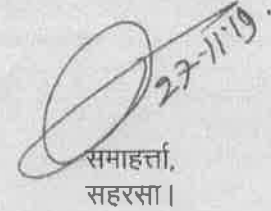 27-11-19.
समाहर्त्ता,
सहरसा।